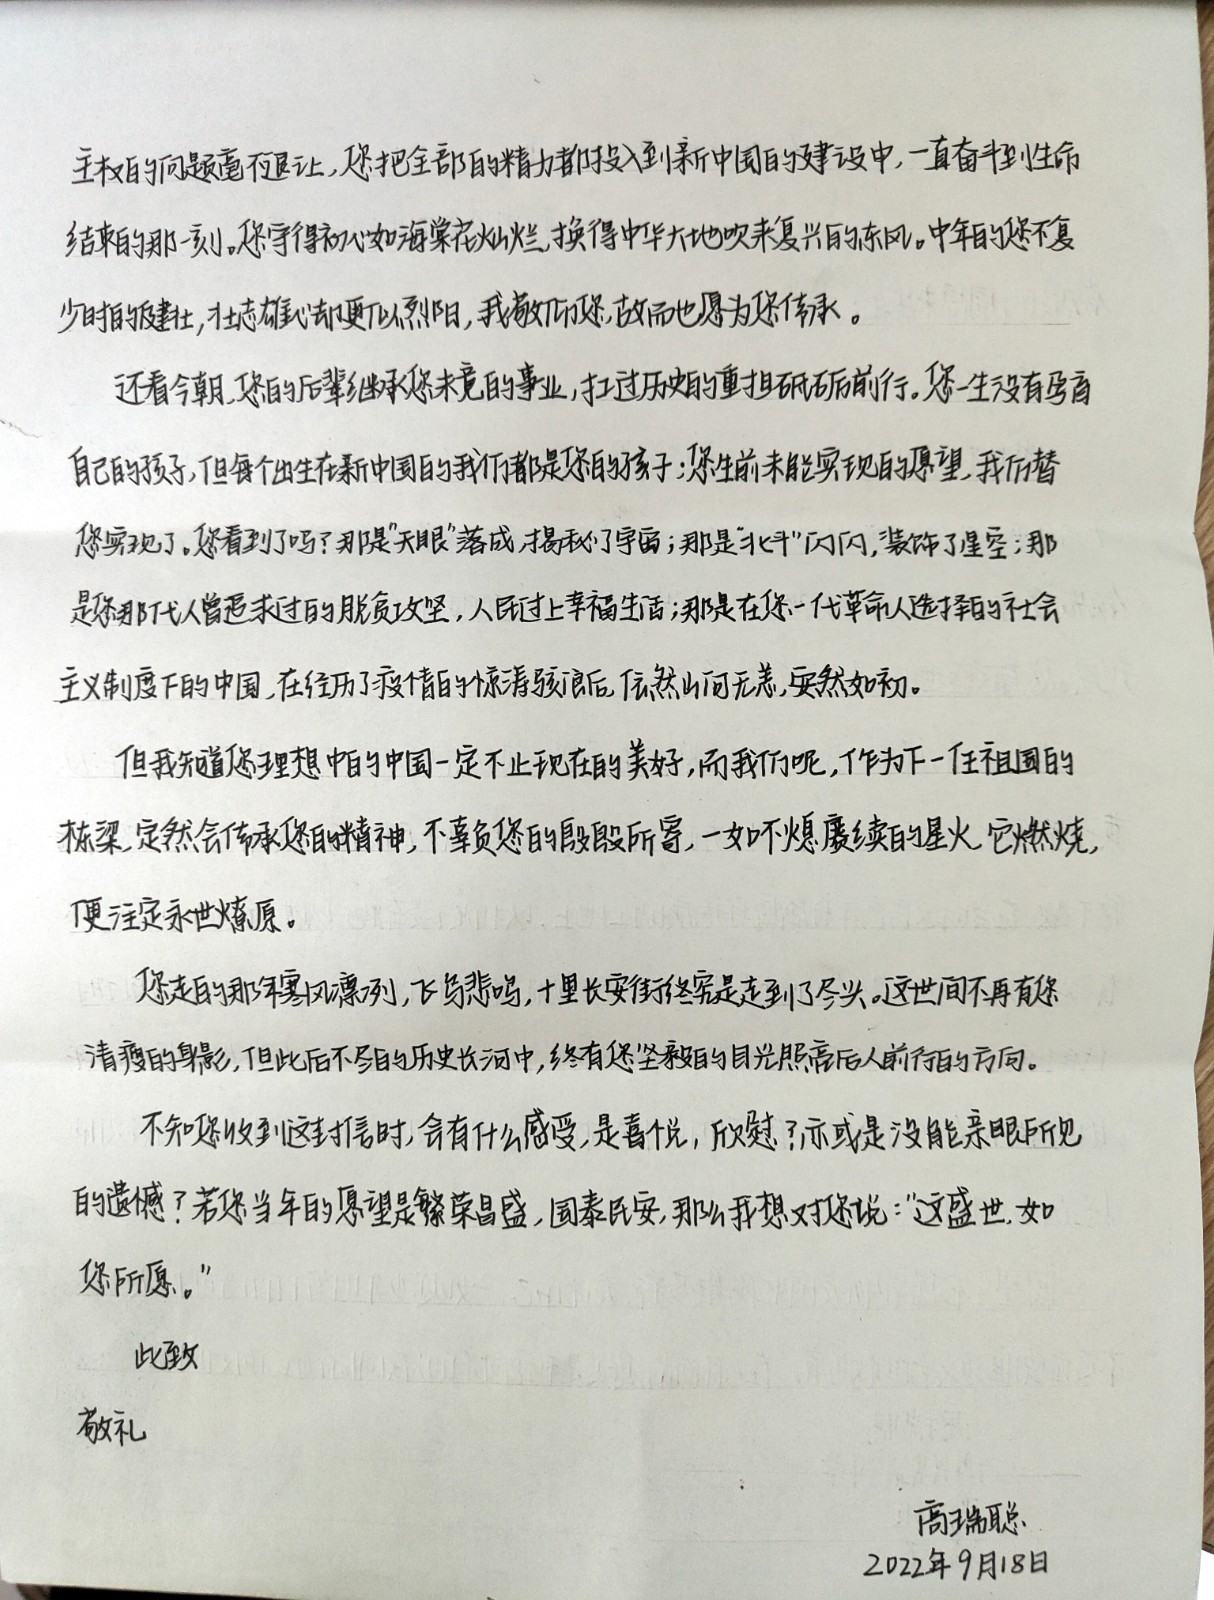 主权的问题毫不退让，您把全部的精力都投入到新中国的建设中，一直奋斗到生命
结束的那一刻。您守得初心如海棠花灿烂，换得中华大地吹来复兴的东风。中年的您不复
少时的健壮，壮志雄心却更似烈阳，我敬仰您，故而也愿为您传承。
还看今朝，您的后辈继承您未竟的事业，扛过历史的重担砥砺前行。您一生没有孕育
自己的孩子，但每个出生在新中国的我们都是您的孩子；您生前未能实现的愿望，我们替
您实现了。您看到了吗？那是“天眼”落成，揭秘了宇宙；那是“北斗”闪闪，装饰了星空；那
是您那代人曾追求过的脱贫攻坚，人民过上幸福生活；那是在您一代革命人选择的社会
主义制度下的中国，在经历了疫情的惊涛骇浪后，依然山河无恙，安然如初。
但我知道您理想中的中国一定不止现在的美好，而我们呢，作为下一任祖国的
栋梁，定然会传承您的精神，不辜负您的殷殷所寄，一如不熄赓续的星火，它燃烧，
便注定永世燎原。
您走的那年寒风凛冽，飞鸟悲鸣，十里长安街终究是走到了尽头。这世间不再有您
清瘦的身影，但此后不尽的历史长河中，终有您坚毅的目光照亮后人前行的方向。
不知您收到这封信时，会有什么感受，是喜悦，欣慰？亦或是没能亲眼所见
的遗憾？若您当年的愿望是繁荣昌盛，国泰民安，那么我想对您说：“这盛世，如
您所愿。”
此致
敬礼
高瑞聪
2022年9月18日